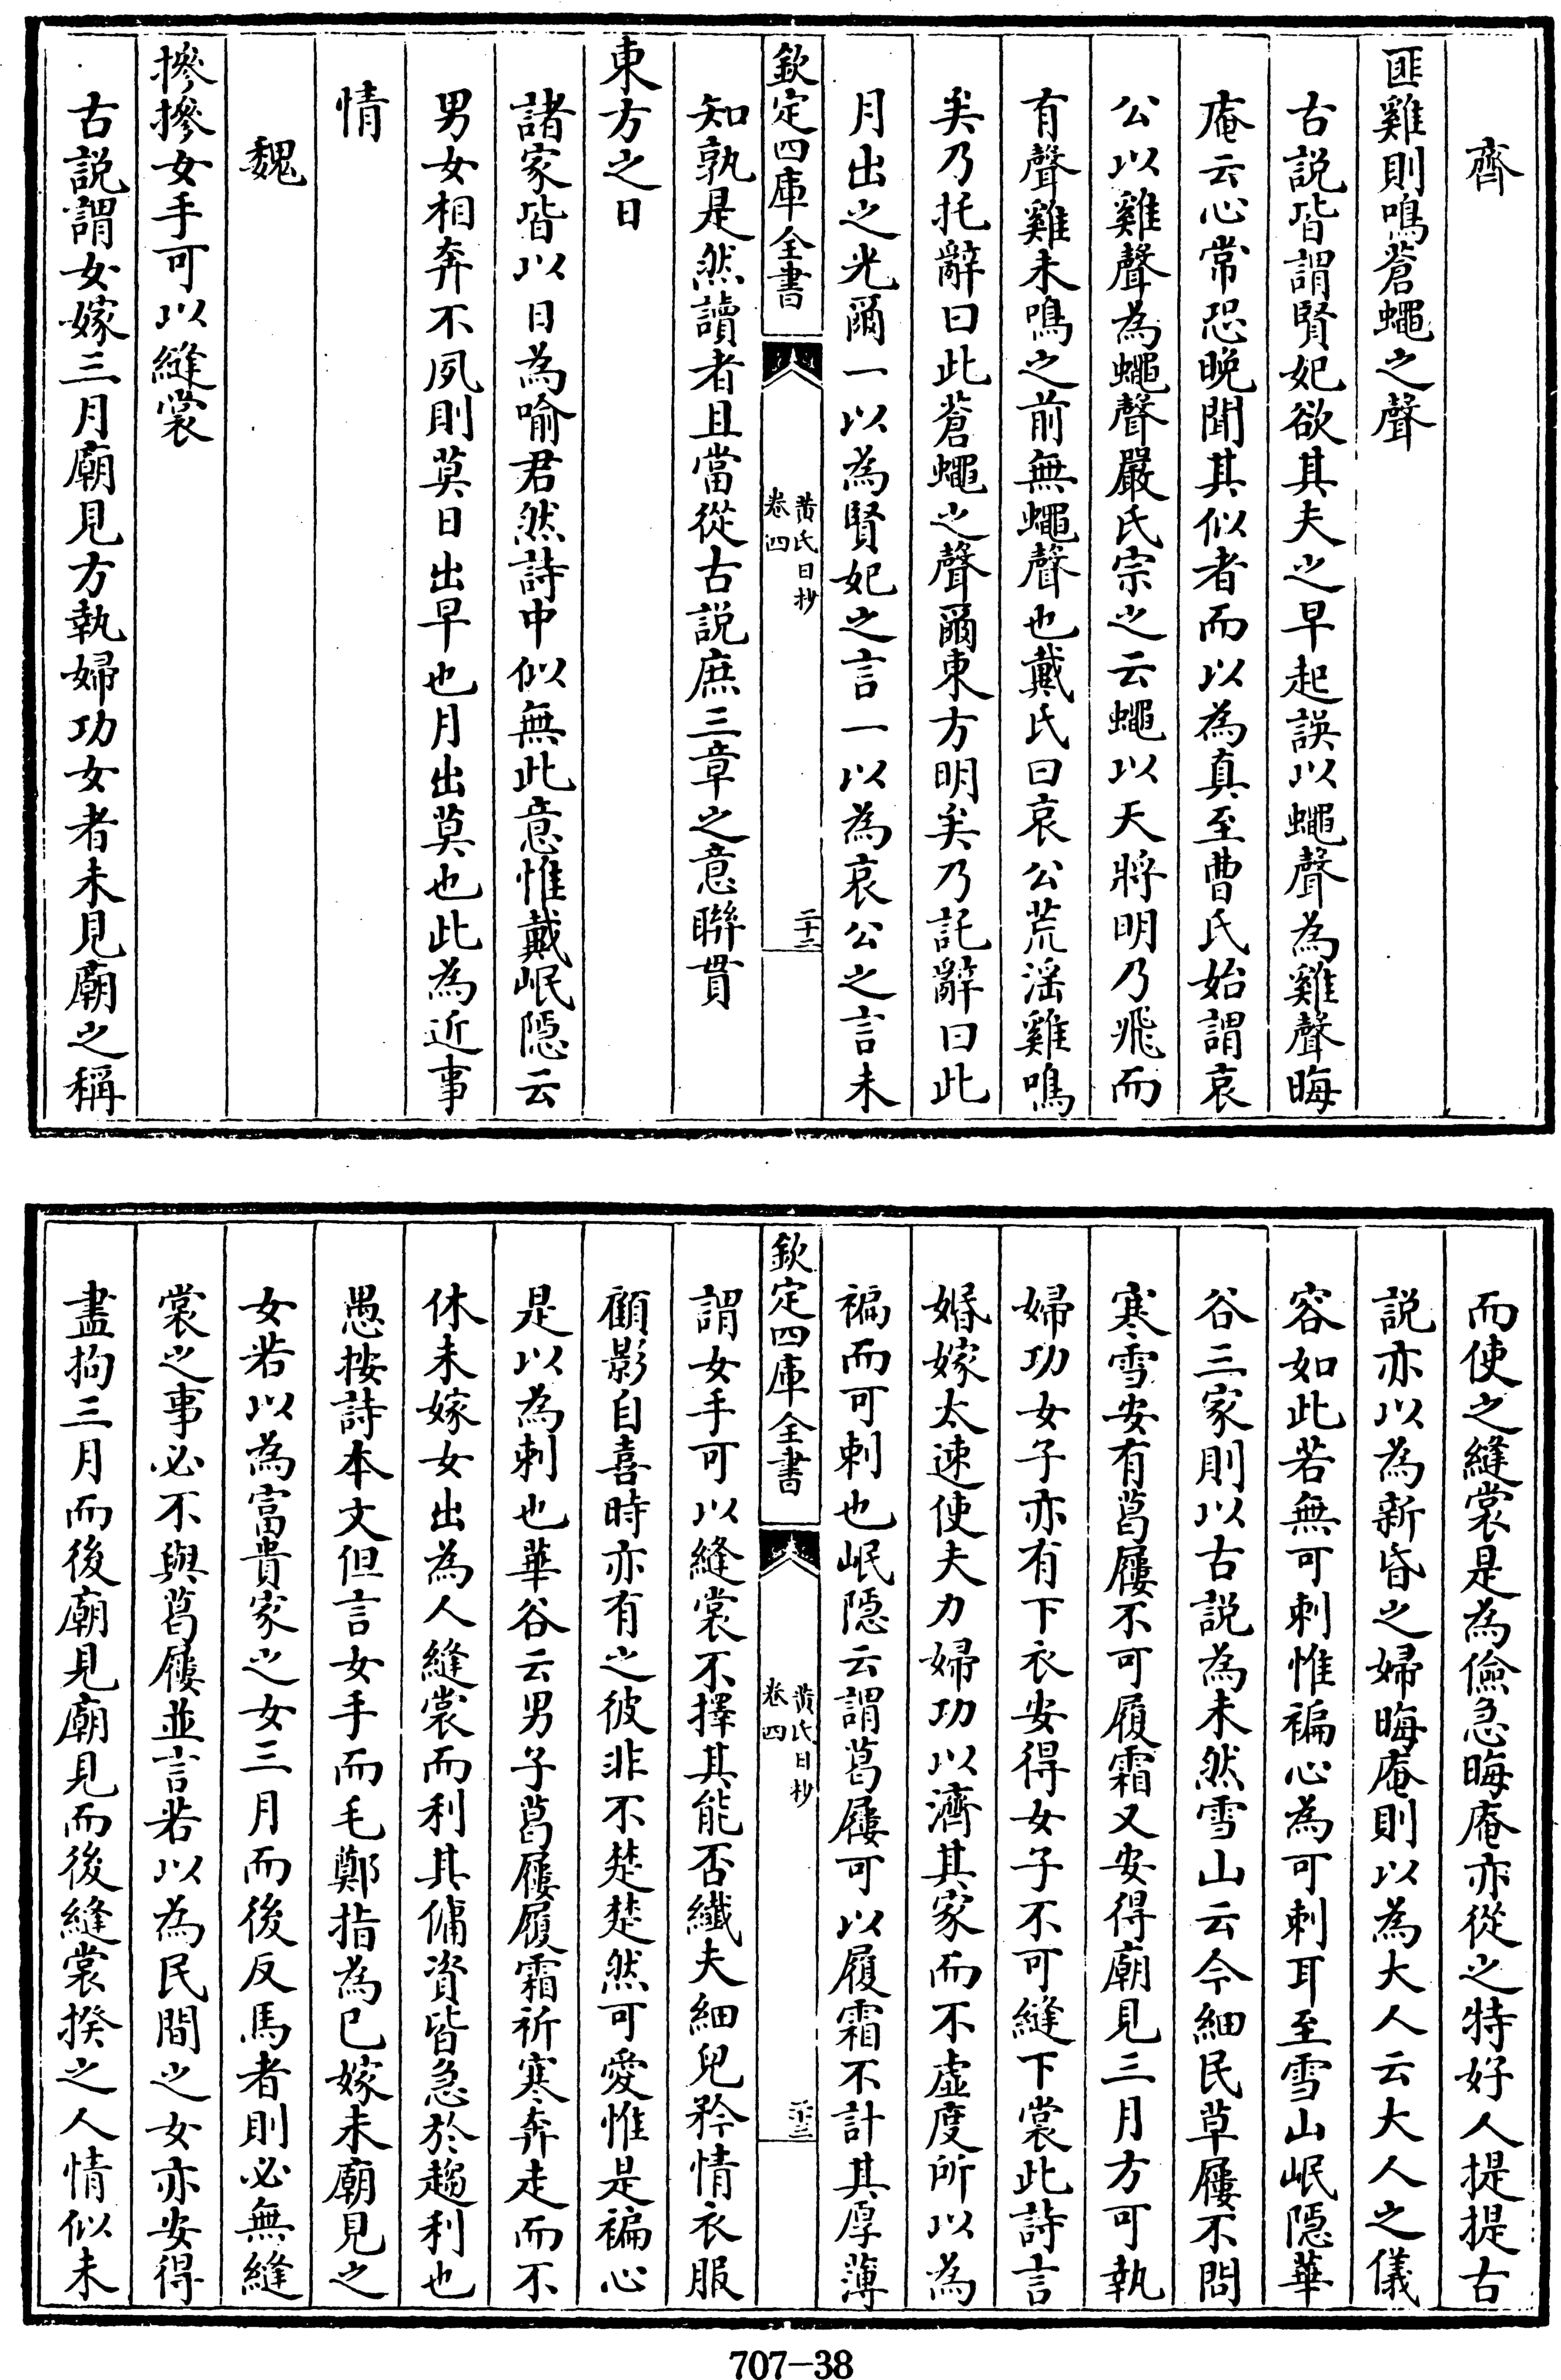 齊
匪雞則鳴蒼蠅之聲
古説皆謂賢妃欲其夫之早起誤以蠅聲為雞聲晦
庵云心常恐晚聞其似者而以為真至曹氏始謂哀
公以雞聲為蠅聲嚴氏宗之云蠅以天將明乃飛而
有聲雞未鳴之前無蠅聲也戴氏曰哀公荒淫雞鳴
矣乃托辭曰此蒼蠅之聲爾東方明矣乃託辭曰此
月出之光爾一以為賢妃之言一以為哀公之言未
欽定四庫全書
黄氏日抄
卷四
二十二
知孰是然讀者且當從古説庶三章之意聯貫
東方之日
諸家皆以日為喻君然詩中似無此意惟戴岷隠云
男女相奔不夙則莫日出早也月出莫也此為近事
情
魏
摻摻女手可以縫裳
古説謂女嫁三月廟見方執婦功女者未見廟之稱
而使之縫裳是為儉急晦庵亦從之特好人提提古
説亦以為新昏之婦晦庵則以為大人云大人之儀
容如此若無可刺惟褊心為可刺耳至雪山岷隠華
谷三家則以古説為未然雪山云今細民草屨不問
寒雪安有葛屨不可履霜又安得廟見三月方可執
婦功女子亦有下衣安得女子不可縫下裳此詩言
婚嫁太速使夫力婦功以濟其家而不虚度所以為
褊而可刺也岷隠云謂葛屨可以履霜不計其厚薄
欽定四庫全書
黄氏日抄
卷四
二十三
謂女手可以縫裳不擇其能否纖夫細兒矜情衣服
顧影自喜時亦有之彼非不楚楚然可愛惟是褊心
是以為刺也華谷云男子葛屨履霜祈寒奔走而不
休未嫁女出為人縫裳而利其傭資皆急於趨利也
愚按詩本文但言女手而毛鄭指為已嫁未廟見之
女若以為富貴家之女三月而後反馬者則必無縫
裳之事必不與葛屨並言若以為民間之女亦安得
盡拘三月而後廟見廟見而後縫裳揆之人情似未
707-38